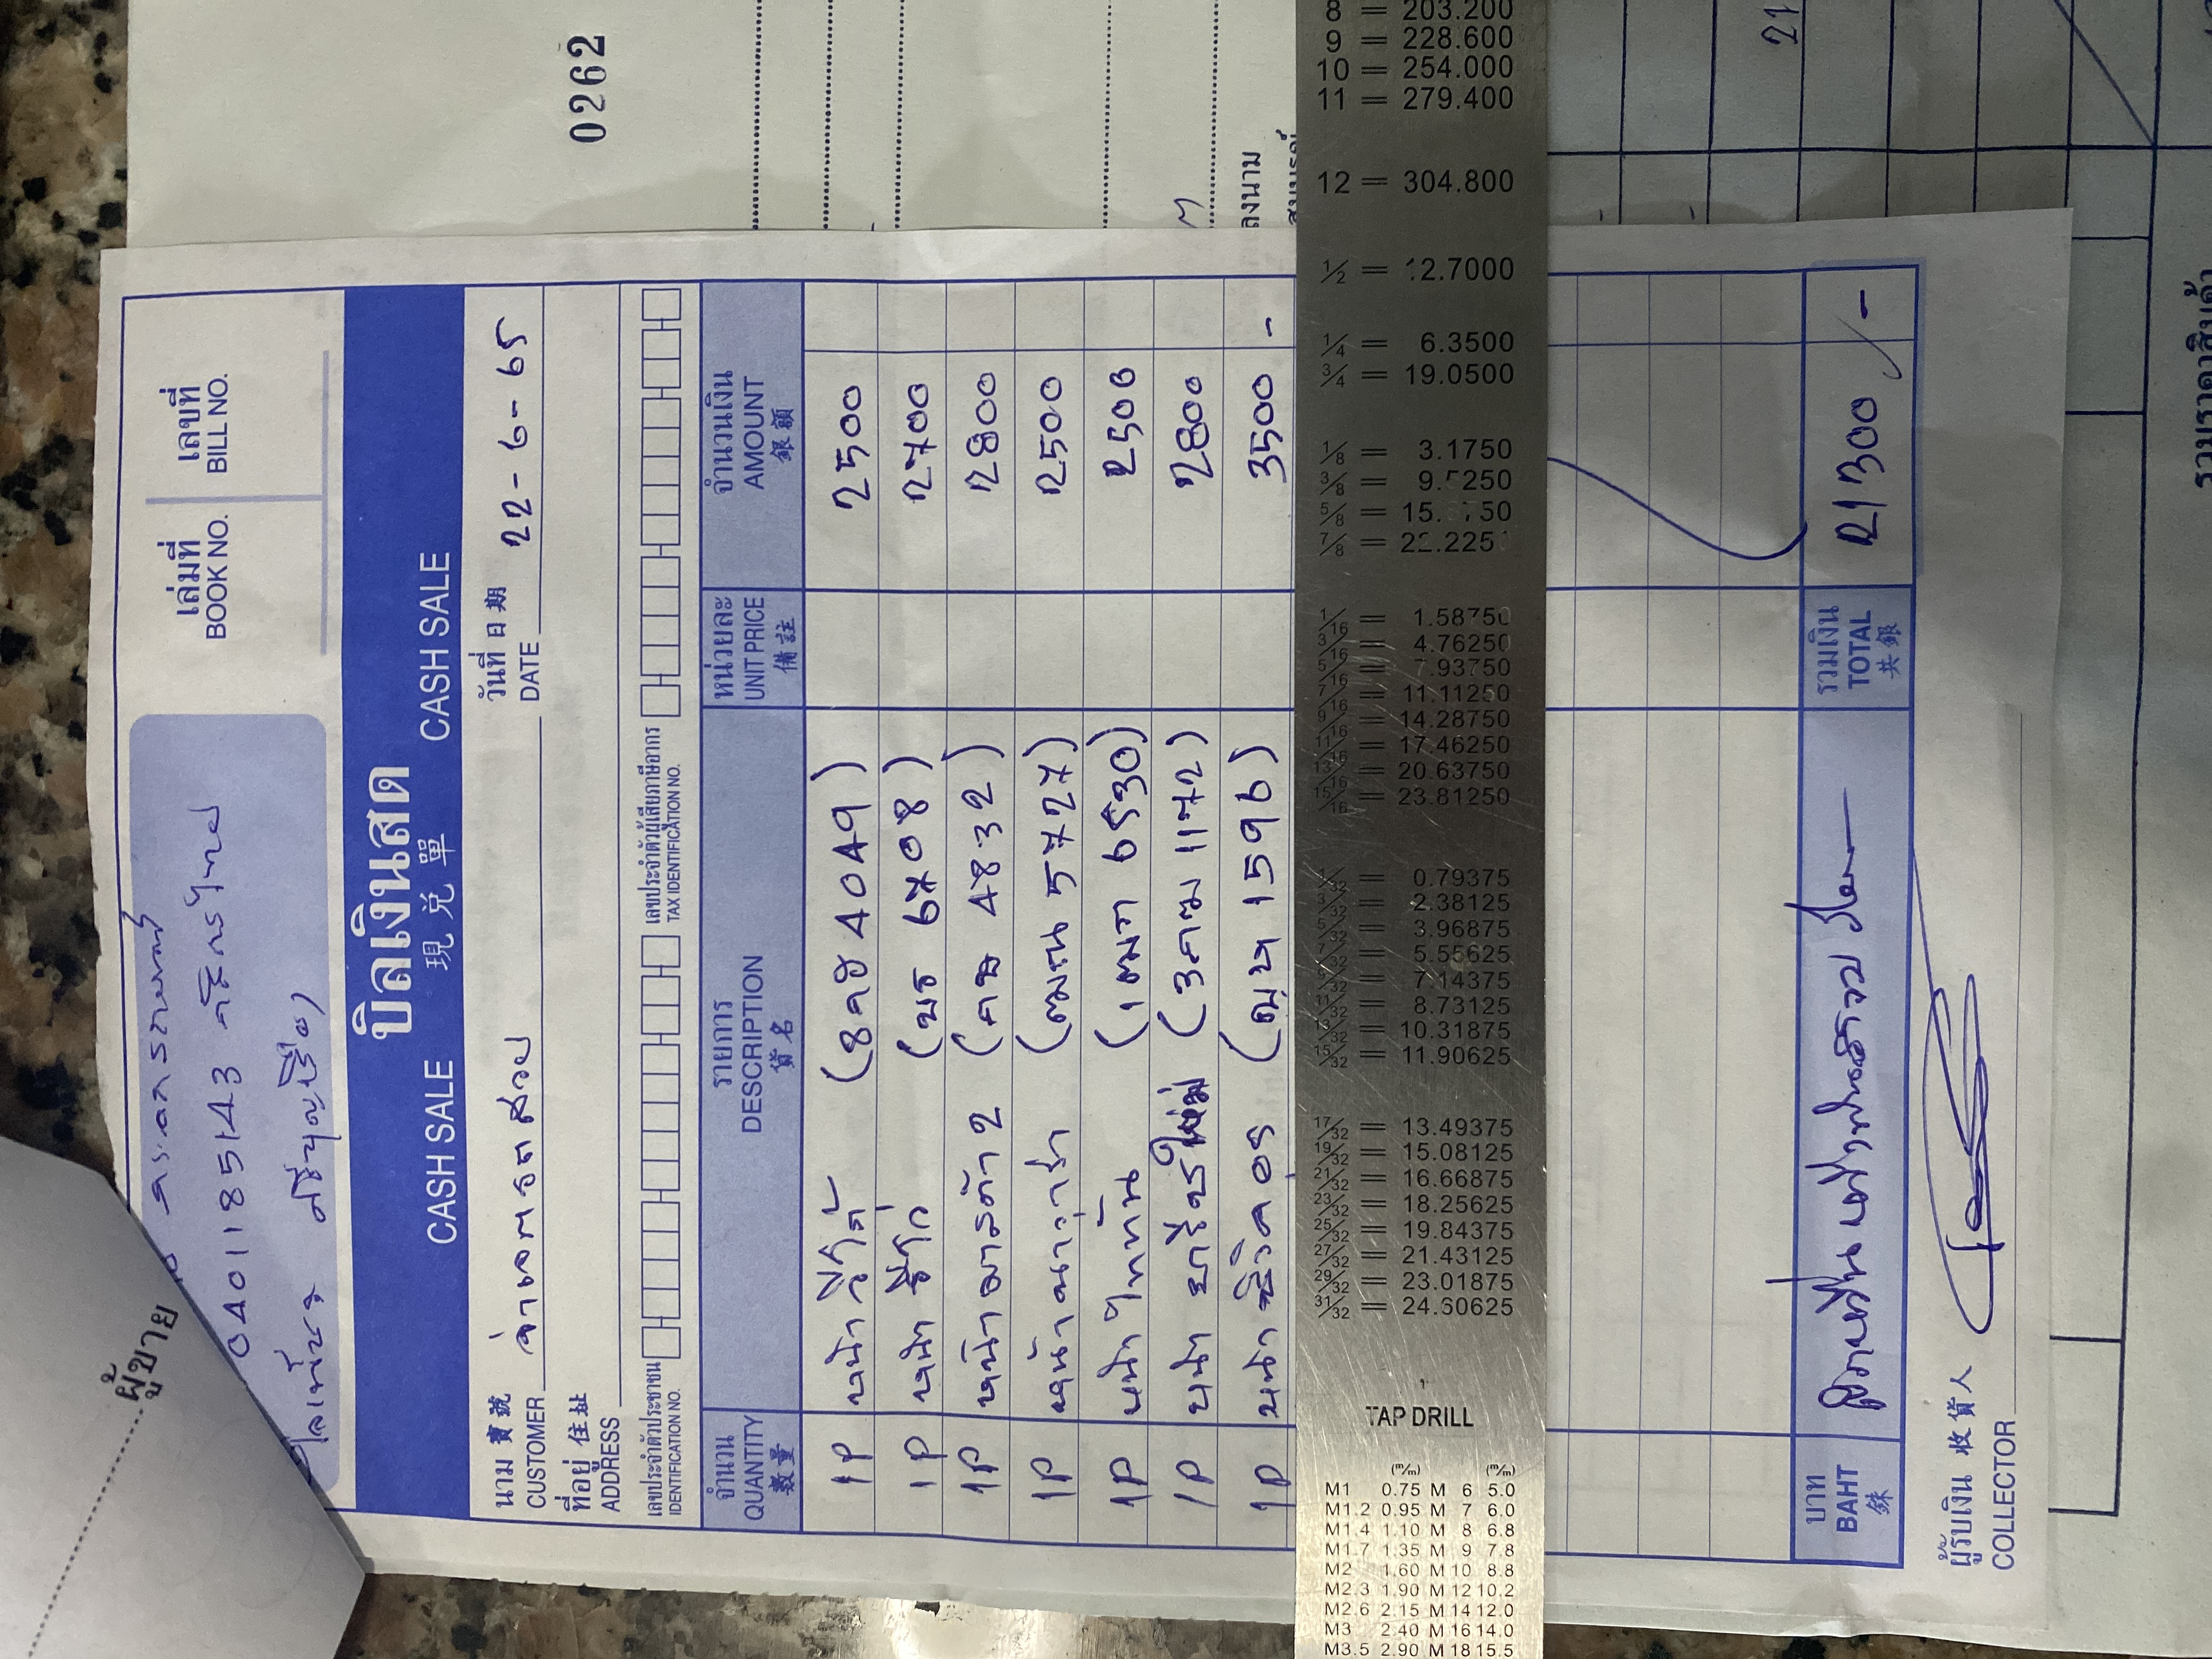 0401185143
เล่มที่ เลขที่
BOOK NO. BILL NO.
บิลเงินสด
CASH SALE 現兌單 CASH SALE
นาม 賣號 วันที่ 日期
CUSTOMER DATE 22-6-65
ที่อยู่ 住址
ADDRESS
เลขประจำตัวประชาชน เลขประจำตัวผู้เสียภาษีอากร
IDENTIFICATION NO. TAX IDENTIFICATION NO.
จำนวน รายการ หน่วยละ จำนวนเงิน
QUANTITY DESCRIPTION UNIT PRICE AMOUNT
數量 貨名 備註 銀額
1P หน้าวีโก้ (8กข 4049) 2500
1P หน้า วีโก้ (บร 6708) 2700
1P หน้ามาสด้า 2 (กฉ 4832) 2800
1P หน้านาวาร่า (ฒณ 5727) 2500
1P หน้าไททัน (1ฒก 6530) 2500
1P หน้า ยาริสใหม่ (3กฒ 1172) 2800
1P หน้า (ฎษ 1596) 3500 -
บาท รวมเงิน
BAHT สองหมื่นหนึ่งพันสามร้อย TOTAL 21300 -
銖 共銀
ผู้รับเงิน 收貨人
COLLECTOR
ผู้ขาย
0262
ลงนาม
21
รวมราคาสินค้า
8 = 203.200
9 = 228.600
10 = 254.000
11 = 279.400
12 = 304.800
1/2 = 12.7000
1/4 = 6.3500
3/4 = 19.0500
1/8 = 3.1750
3/8 = 9.5250
5/8 = 15.8750
7/8 = 22.2250
1/16 = 1.58750
3/16 = 4.76250
5/16 = 7.93750
7/16 = 11.11250
9/16 = 14.28750
11/16 = 17.46250
13/16 = 20.63750
15/16 = 23.81250
1/32 = 0.79375
3/32 = 2.38125
5/32 = 3.96875
7/32 = 5.55625
9/32 = 7.14375
11/32 = 8.73125
13/32 = 10.31875
15/32 = 11.90625
17/32 = 13.49375
19/32 = 15.08125
21/32 = 16.66875
23/32 = 18.25625
25/32 = 19.84375
27/32 = 21.43125
29/32 = 23.01875
31/32 = 24.60625
TAP DRILL
(m/m) (m/m)
M1 0.75 M 6 5.0
M1.2 0.95 M 7 6.0
M1.4 1.10 M 8 6.8
M1.7 1.35 M 9 7.8
M2 1.60 M 10 8.8
M2.3 1.90 M 12 10.2
M2.6 2.15 M 14 12.0
M3 2.40 M 16 14.0
M3.5 2.90 M 18 15.5